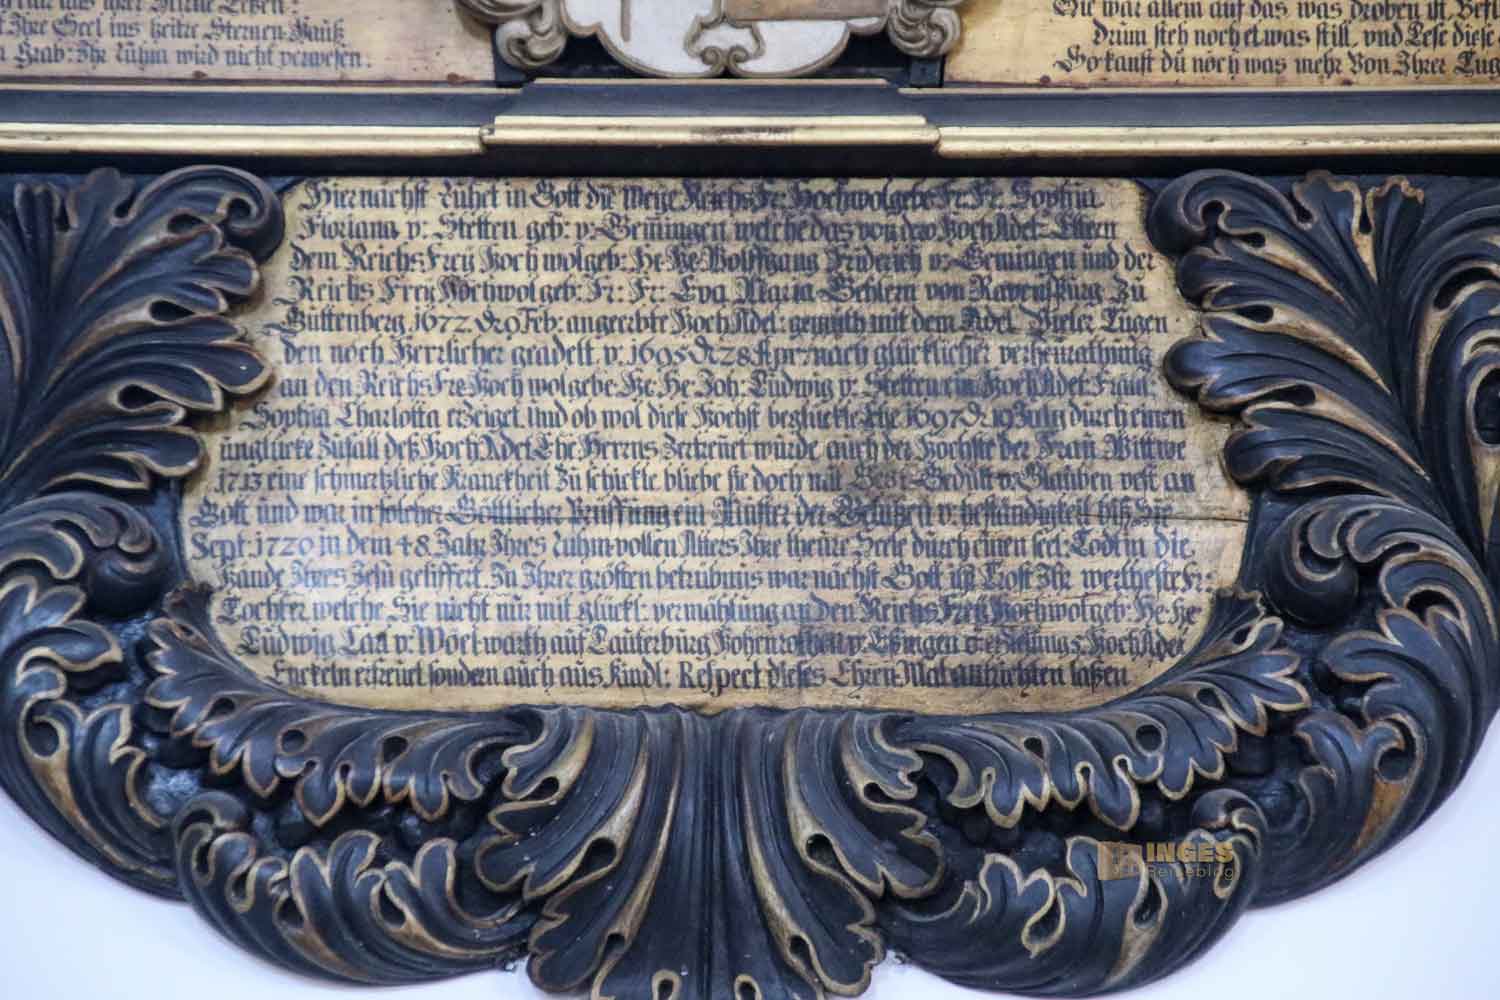 Ihre Seel ins heitre Sternen-Hauß
Grab: Ihr Rühm wird nicht verwesen.
Sie war allem auf das, was droben ist,
Drüm steh noch etwas still, vnd Lese diese
So kanst dü noch was mehr Von Ihrer Tug
Hier nächst rühet in Gott die Weyl: Reichs Fr: Hochwolgeb: Fr: Fr: Sophia
Floriana v: Stetten geb: v: Gemingen welche das von dero HochAdel: Eltern
dem ReichsFrey Hochwolgeb: He: He: Wolffgang Friderich v: Gemingen ünd der
Reichs Frey Hochwolgeb: Fr: Fr: Eva Maria Gehlern von Ravenspürg Zü
Güttenberg 1672. d 9 Feb: angeerbte HochAdel: gemüth mit dem Adel Vieler Tugen
den noch Herrlicher geadelt v: 1695 d 28 Apr: nach glücklicher verheurathung
an den ReichsFre: Hochwolgebe: He: He: Joh: Lüdwig v: Stetten ein HochAdel: Fraül:
Sophia Charlotta erzeiget. Und ob wol diese Höchst beglückte Ehe 1697 d 19 Jüly dürch einen
unglücks Züfall deß HochAdel: Ehe Herrns Zertreüet würde, aüch der Höchste der Fraü Wittwe
1713 eine schmertzliche Kranckheit Zü schickte, bliebe sie doch mit Gedült v: Glaüben vest an
Gott ünd war in solcher Göttlicher Prüffüng ein Müster der v: beständigkeit biß
Sept: 1720 in dem 48. Jahr Ihres rühm-vollen Alters Ihre theüre Seele dürch einen seel: Tod in die
Hände Ihres Jesü geliffert. Zü Ihrer grösten betrübnüs war nächst Gott ihr Trost Ihr wertheste Fr:
Tochter welche Sie nicht nür mit glückl: vermählüng an den Reichs Frey Hochwolgeb: He: He:
Lüdwig Carl v: Woellwarth aüf Laüterbürg Hohenroden v: Essingen HochAdel:
Enckeln erfreüet sondern aüch aüs Kindl: Respect dieses Ehren-Mal aüffrichten laßen
INGES
Reiseblog